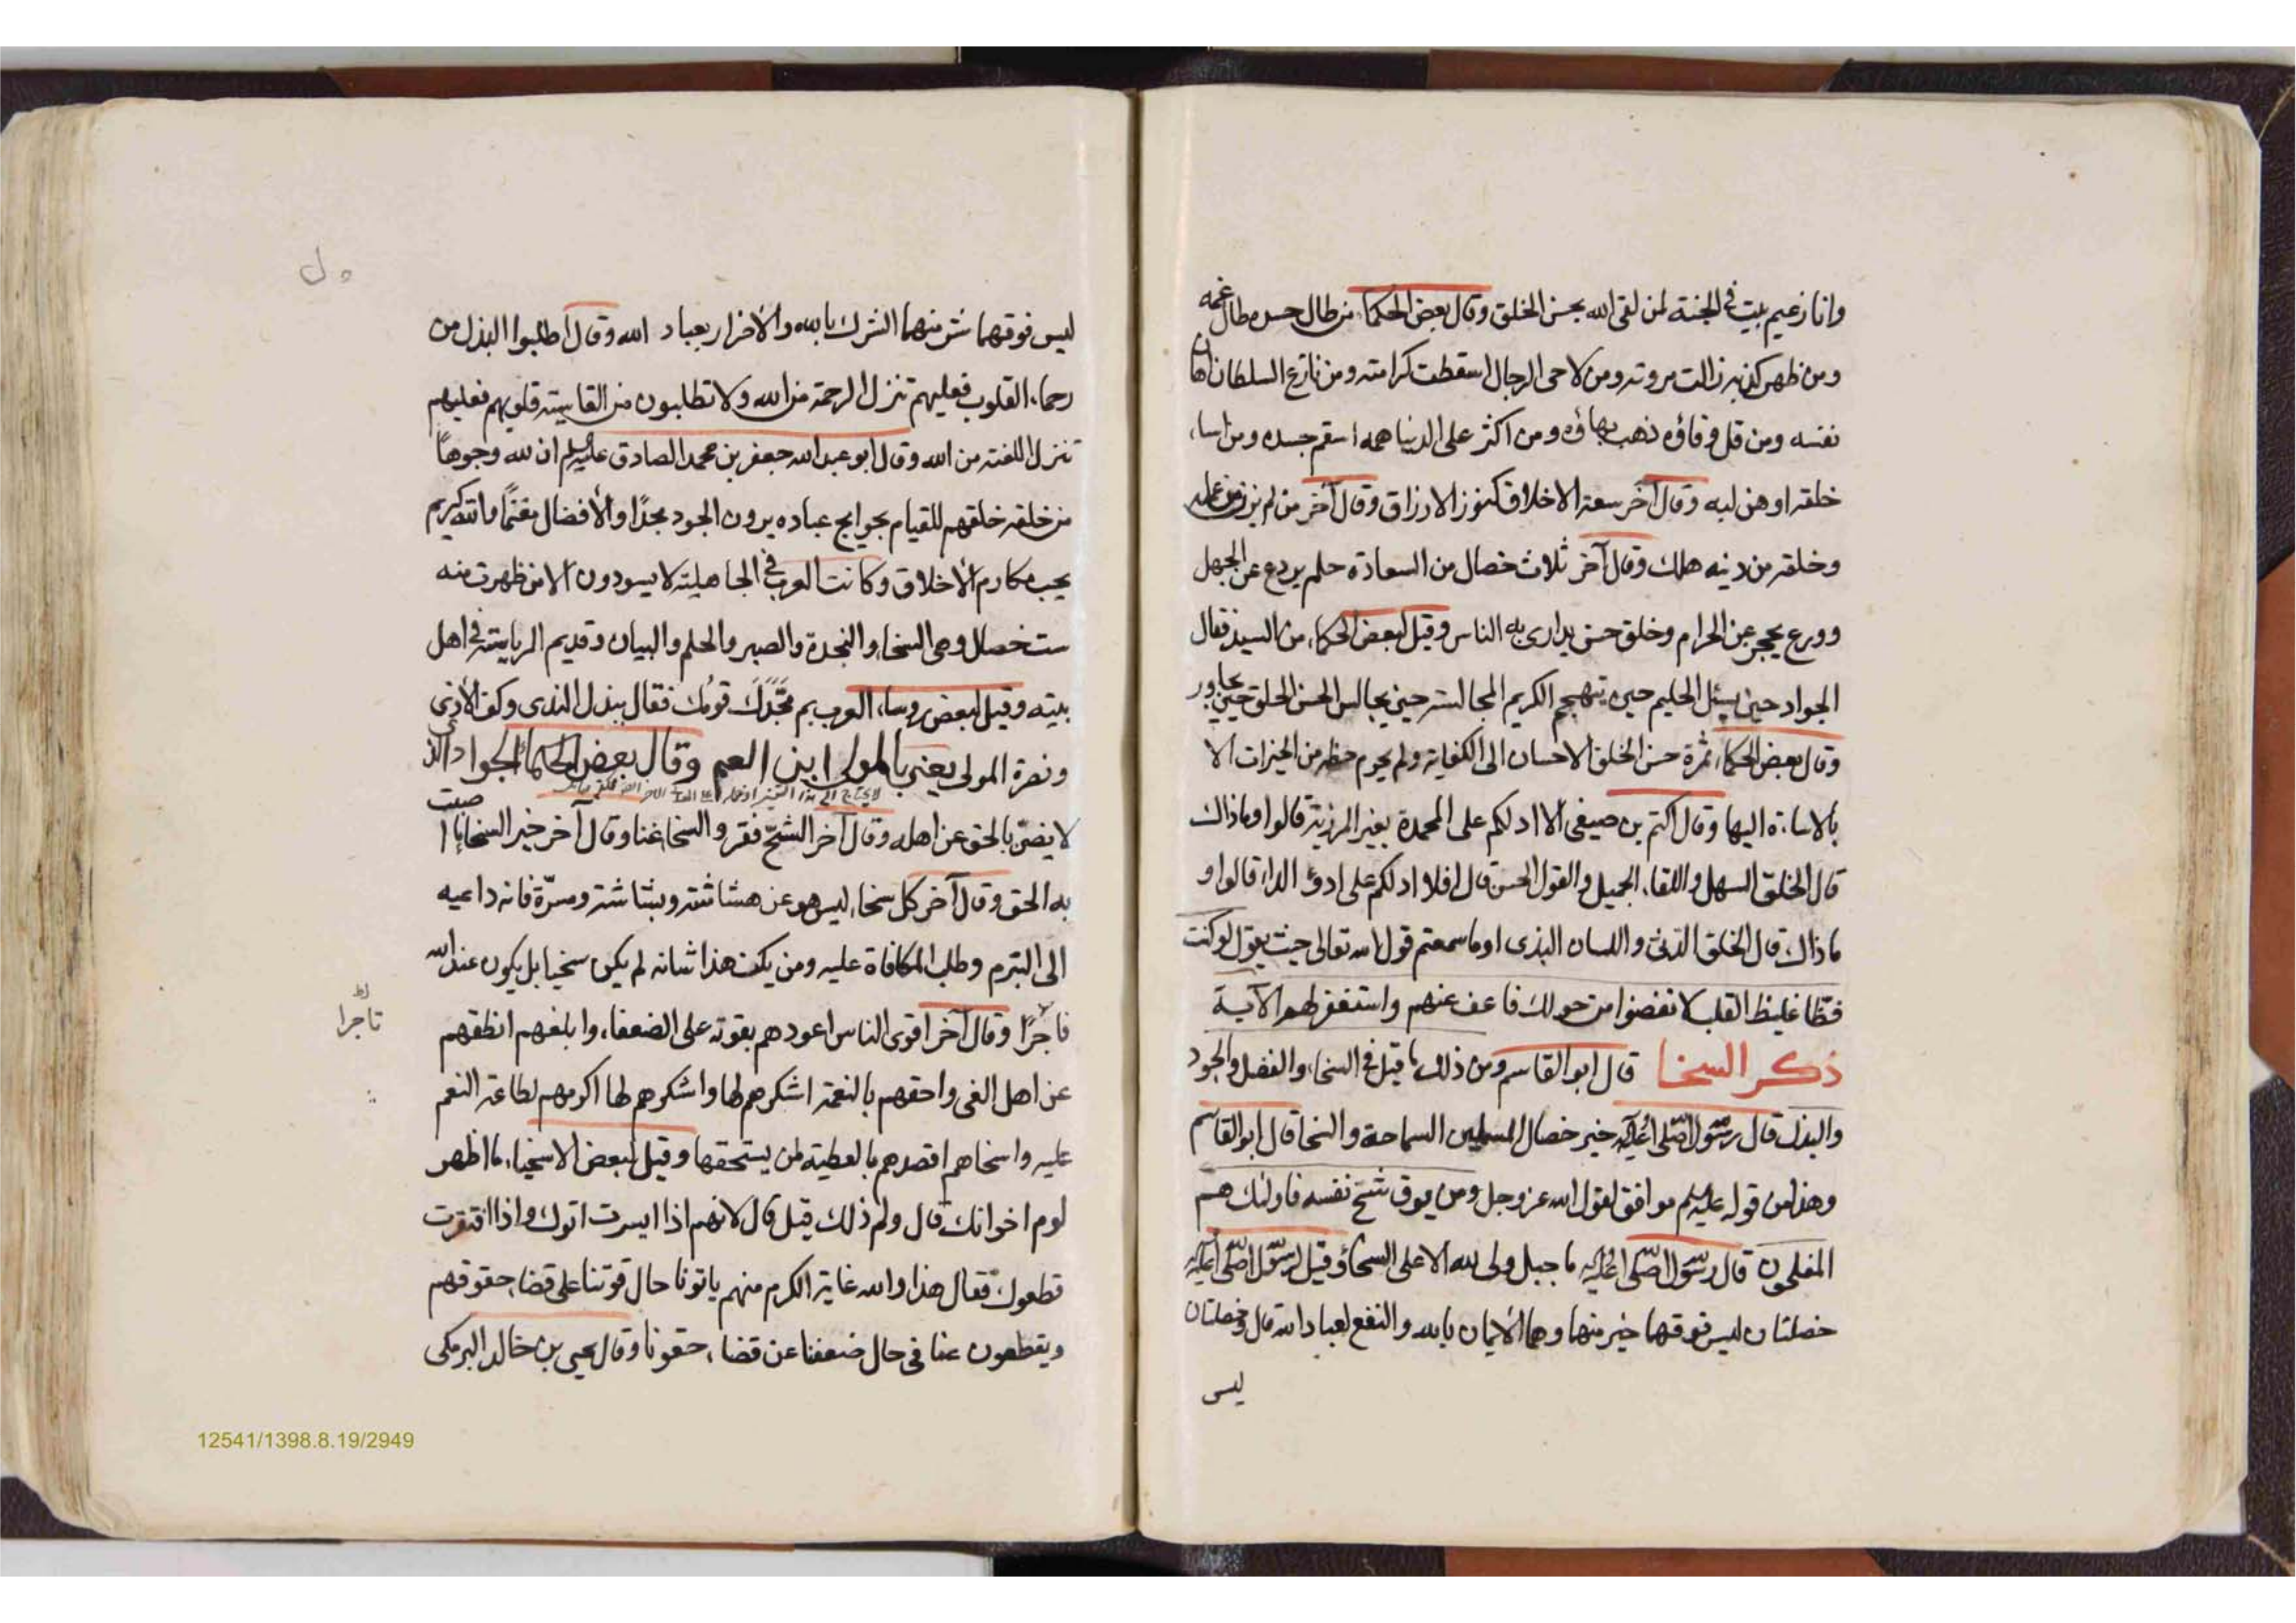 وانا زعيم ببيت في الجنة لمن لقى الله بحسن الخلق وقال بعض الحكما، من طال حسده طال غمه
ومن ظهر كذبه زالت مروته ومن لاحى الرجال اسقطت كرامته ومن نازع السلطان اهان
نفسه ومن قل وفاؤه ذهب بهاؤه ومن اكثر على الدنيا همه اسقم جسده ومن اساء
خلقه اوهن لبه وقال آخر سعة الاخلاق كنوز الارزاق وقال آخر من لم
وخلقه من دينه هلك وقال آخر ثلاث خصال من السعادة حلم يردع عن الجهل
وورع يحجر عن الحرام وخلق حسن يدارى به الناس وقيل لبعض الحكماء من السيد فقال
الجواد حين يسئل الحليم حين الكريم المجالسة حين يجالس الحسن الخلق حين يجاور
وقال بعض الحكماء ثمرة حسن الخلق الاحسان الى الكفاية ولم يحرم حظه من الخيرات الا
بالاساءة اليها وقال اكثم بن صيفى الا ادلكم على المحمدة بغير المرزية قالوا وماذاك
قال الخلق السهل واللقاء الجميل والقول الحسن قال افلا ادلكم على ادوء الداء قالوا و
ماذاك قال الخلق الدنئ واللسان البذى اوما سمعتم قول الله تعالى حيث يقول لو كنت
فظا غليظ القلب لانفضوا من حولك فاعف عنهم واستغفر لهم الآية
ذكر السخا قال ابو القاسم ومن ذلك ما قيل في السخاء والفضل والجود
والبذل قال رسول الله صلى الله عليه وآله خير خصال المسلمين السماحة والسخا قال ابو القاسم
وهذا من قوله عليه السلم موافق لقول الله عز وجل ومن يوق شح نفسه فاولئك هم
المفلحون قال رسول الله صلى الله عليه وآله ما جبل ولى لله الا على السخاء وقيل لرسول الله صلى الله عليه وآله
خصلتان ليس فوقهما خير منهما وهما الأيمان بالله والنفع لعباد الله قال وخصلتان
ليس
ليس فوقهما شر منهما الشرك بالله والأضرار بعباد الله وقال اطلبوا البذل من
رحماء القلوب فعليهم تنزل الرحمة من الله ولا تطلبون من القاسية قلوبهم فعليهم
تنزل اللعنة من الله وقال ابو عبد الله جعفر بن محمد الصادق عليه السلم ان لله وجوهاً
من خلقه خلقهم للقيام بحوايج عباده يرون الجود مجدًا والأفضال مغنمًا والله كريم
يحب مكارم الأخلاق وكانت العرب في الجاهلية لا يسودون الا من ظهرت منه
ست خصال وهى السخاء والنجدة والصبر والحلم والبيان وقديم الرياسة في اهل
بيته وقيل لبعض روساء العرب بم مجّدك قومك فقال ببذل الندى وكف الأذى
ونصرة المولى يعنى بالمولى ابن العم وقال بعض الحكماء الجواد الذي
لا يضن بالحق عن اهله وقال آخر الشحّ فقر والسخا غنا وقال آخر خير السخا ما اصبت
به الحق وقال آخر كل سخاء ليس هو عن هشاشة وبشاشة ومسرّة فانه داعيه
الى التبرم وطلب المكافاة عليه ومن يكن هذا شانه لم يكن سخيا بل يكون عند الله
فاجرًا وقال آخر اقوى الناس اعودهم بقوته على الضعفاء وابلغهم انطقهم
تاجرا
عن اهل العى واحقهم بالنعمة اشكرهم لها واشكرهم لها اكرمهم لطاعة النعم
عليه واسخاهم اقصدهم بالعطية لمن يستحقها وقيل لبعض الاسخياء ما اظهر
لوم اخوانك قال ولم ذلك قيل قال لانهم اذا ايسرت اتوك واذا افتقرت
قطعوك فقال هذا والله غاية الكرم منهم ياتونا حال قوتنا على قضاء حقوقهم
ويقطعون عنا في حال ضعفنا عن قضاء حقوقنا وقال يحيى بن خالد البرمكى
12541/1398.8.19/2949